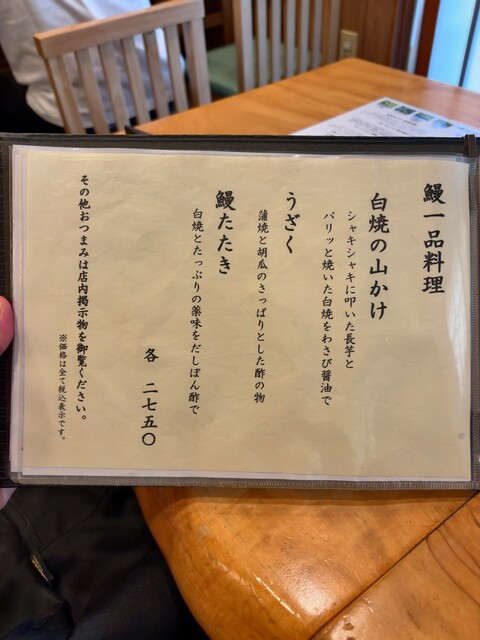 鰻一品料理
白焼の山かけ
シャキシャキに叩いた長芋と
パリッと焼いた白焼をわさび醤油で
うざく
蒲焼と胡瓜のさっぱりとした酢の物
鰻たたき
白焼とたっぷりの薬味をだしぽん酢で
各 二七五〇
その他おつまみは店内掲示物を御覧ください。
※価格は全て税込表示です。